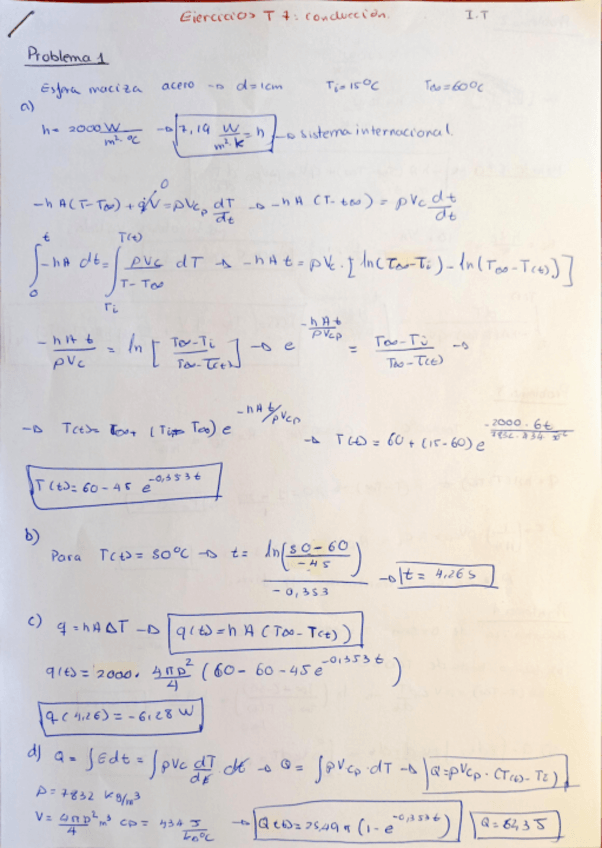 Ejercicios T7: conducción. I.T
Problema 1
Esfera maciza acero → d=1cm Ti=15ºC T∞=60ºC
a)
h= 2000 W/m²·ºC → 7,19 W/m²·K = h → sistema internacional.
-hA(T-T∞) + q̇V = ρVcp dT/dt → -hA (T-t∞) = ρVc dt/dt
∫₀ᵗ -hA dt = ∫_Ti^T(t) ρVc/(T-T∞) dT → -hAt = ρV. [ln(T∞-Ti) - ln(T∞-T(t))]
-hAt/ρVc = ln [(T∞-Ti)/(T∞-T(t))] → e^(-hAt/ρVcp) = (T∞-Ti)/(T∞-T(t)) →
→ T(t)= T∞+ (Ti- T∞) e^(-hAt/ρVcp) → T(t) = 60 + (15-60) e
T(t)= 60-45 e^(-0,353t)
b)
Para T(t)= 50ºC → t= ln((50-60)/-45)/-0,353 → t= 4,26s
c) q=hAΔT → q(t)=hA(T∞-T(t))
q(t)= 2000· 4πD²/4 (60-60-45e^(-0,353t))
q(4,26)= -6,28W
d) Q= ∫Edt = ∫ρVc dT/dt dt → Q= ∫ρVcp·dT → Q=ρVcp·(T(t)-Ti)
ρ=7832 kg/m³
V= 4πD²/4 m³ cp= 434 J/kgºC → Q(t)=25,49π(1-e^(-0,353t)) Q=